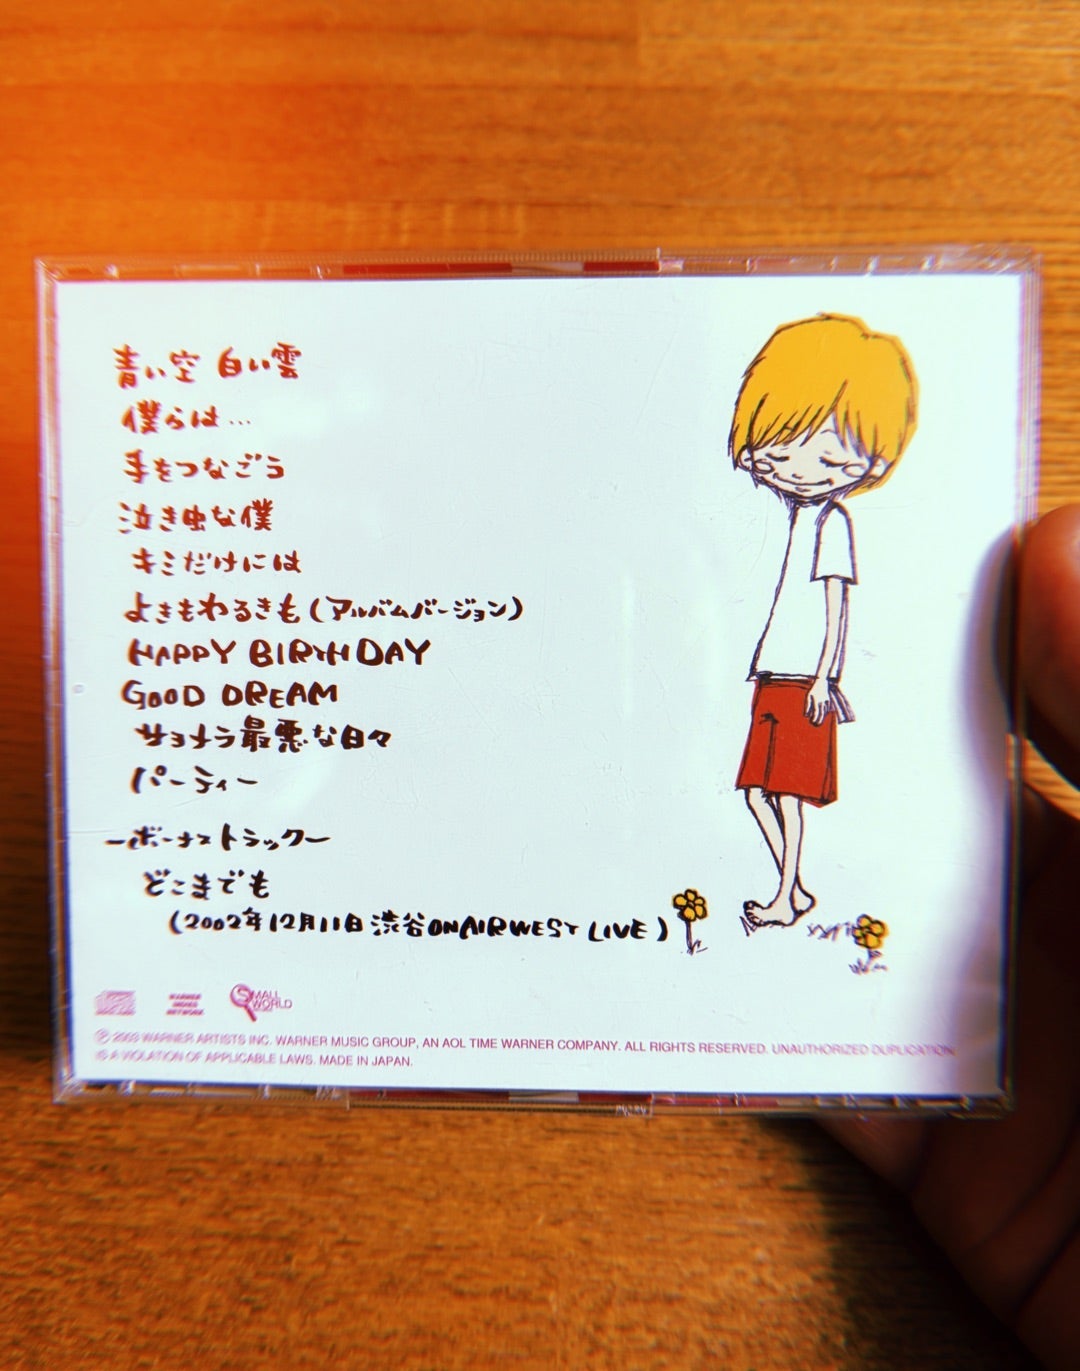 青い空 白い雲
僕らは…
手をつなごう
泣き虫な僕
キミだけには
よきもわるきも(アルバムバージョン)
HAPPY BIRTHDAY
GOOD DREAM
サヨナラ最悪な日々
パーティー
ーボーナストラックー
どこまでも
(2002年12月11日 渋谷ON AIR WEST LIVE)
SMALL WORLD
Ⓟ 2003 WARNER ARTISTS INC. WARNER MUSIC GROUP, AN AOL TIME WARNER COMPANY. ALL RIGHTS RESERVED. UNAUTHORIZED DUPLICATION
IS A VIOLATION OF APPLICABLE LAWS. MADE IN JAPAN.